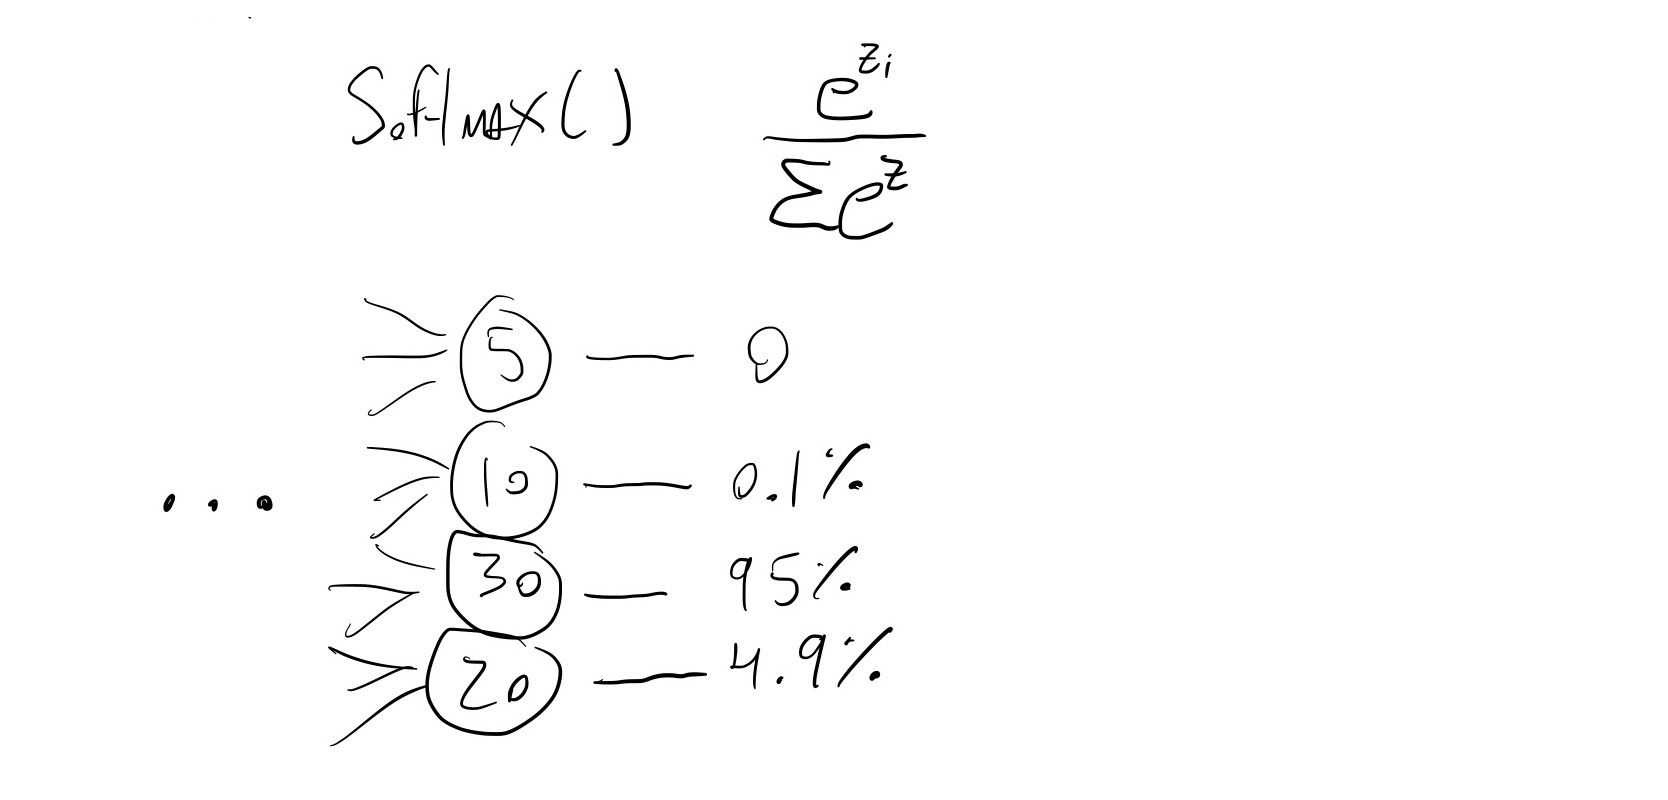 Softmax() e^{z_i} / Σe^z
5 — 0
10 — 0.1%
... 30 — 95%
20 — 4.9%